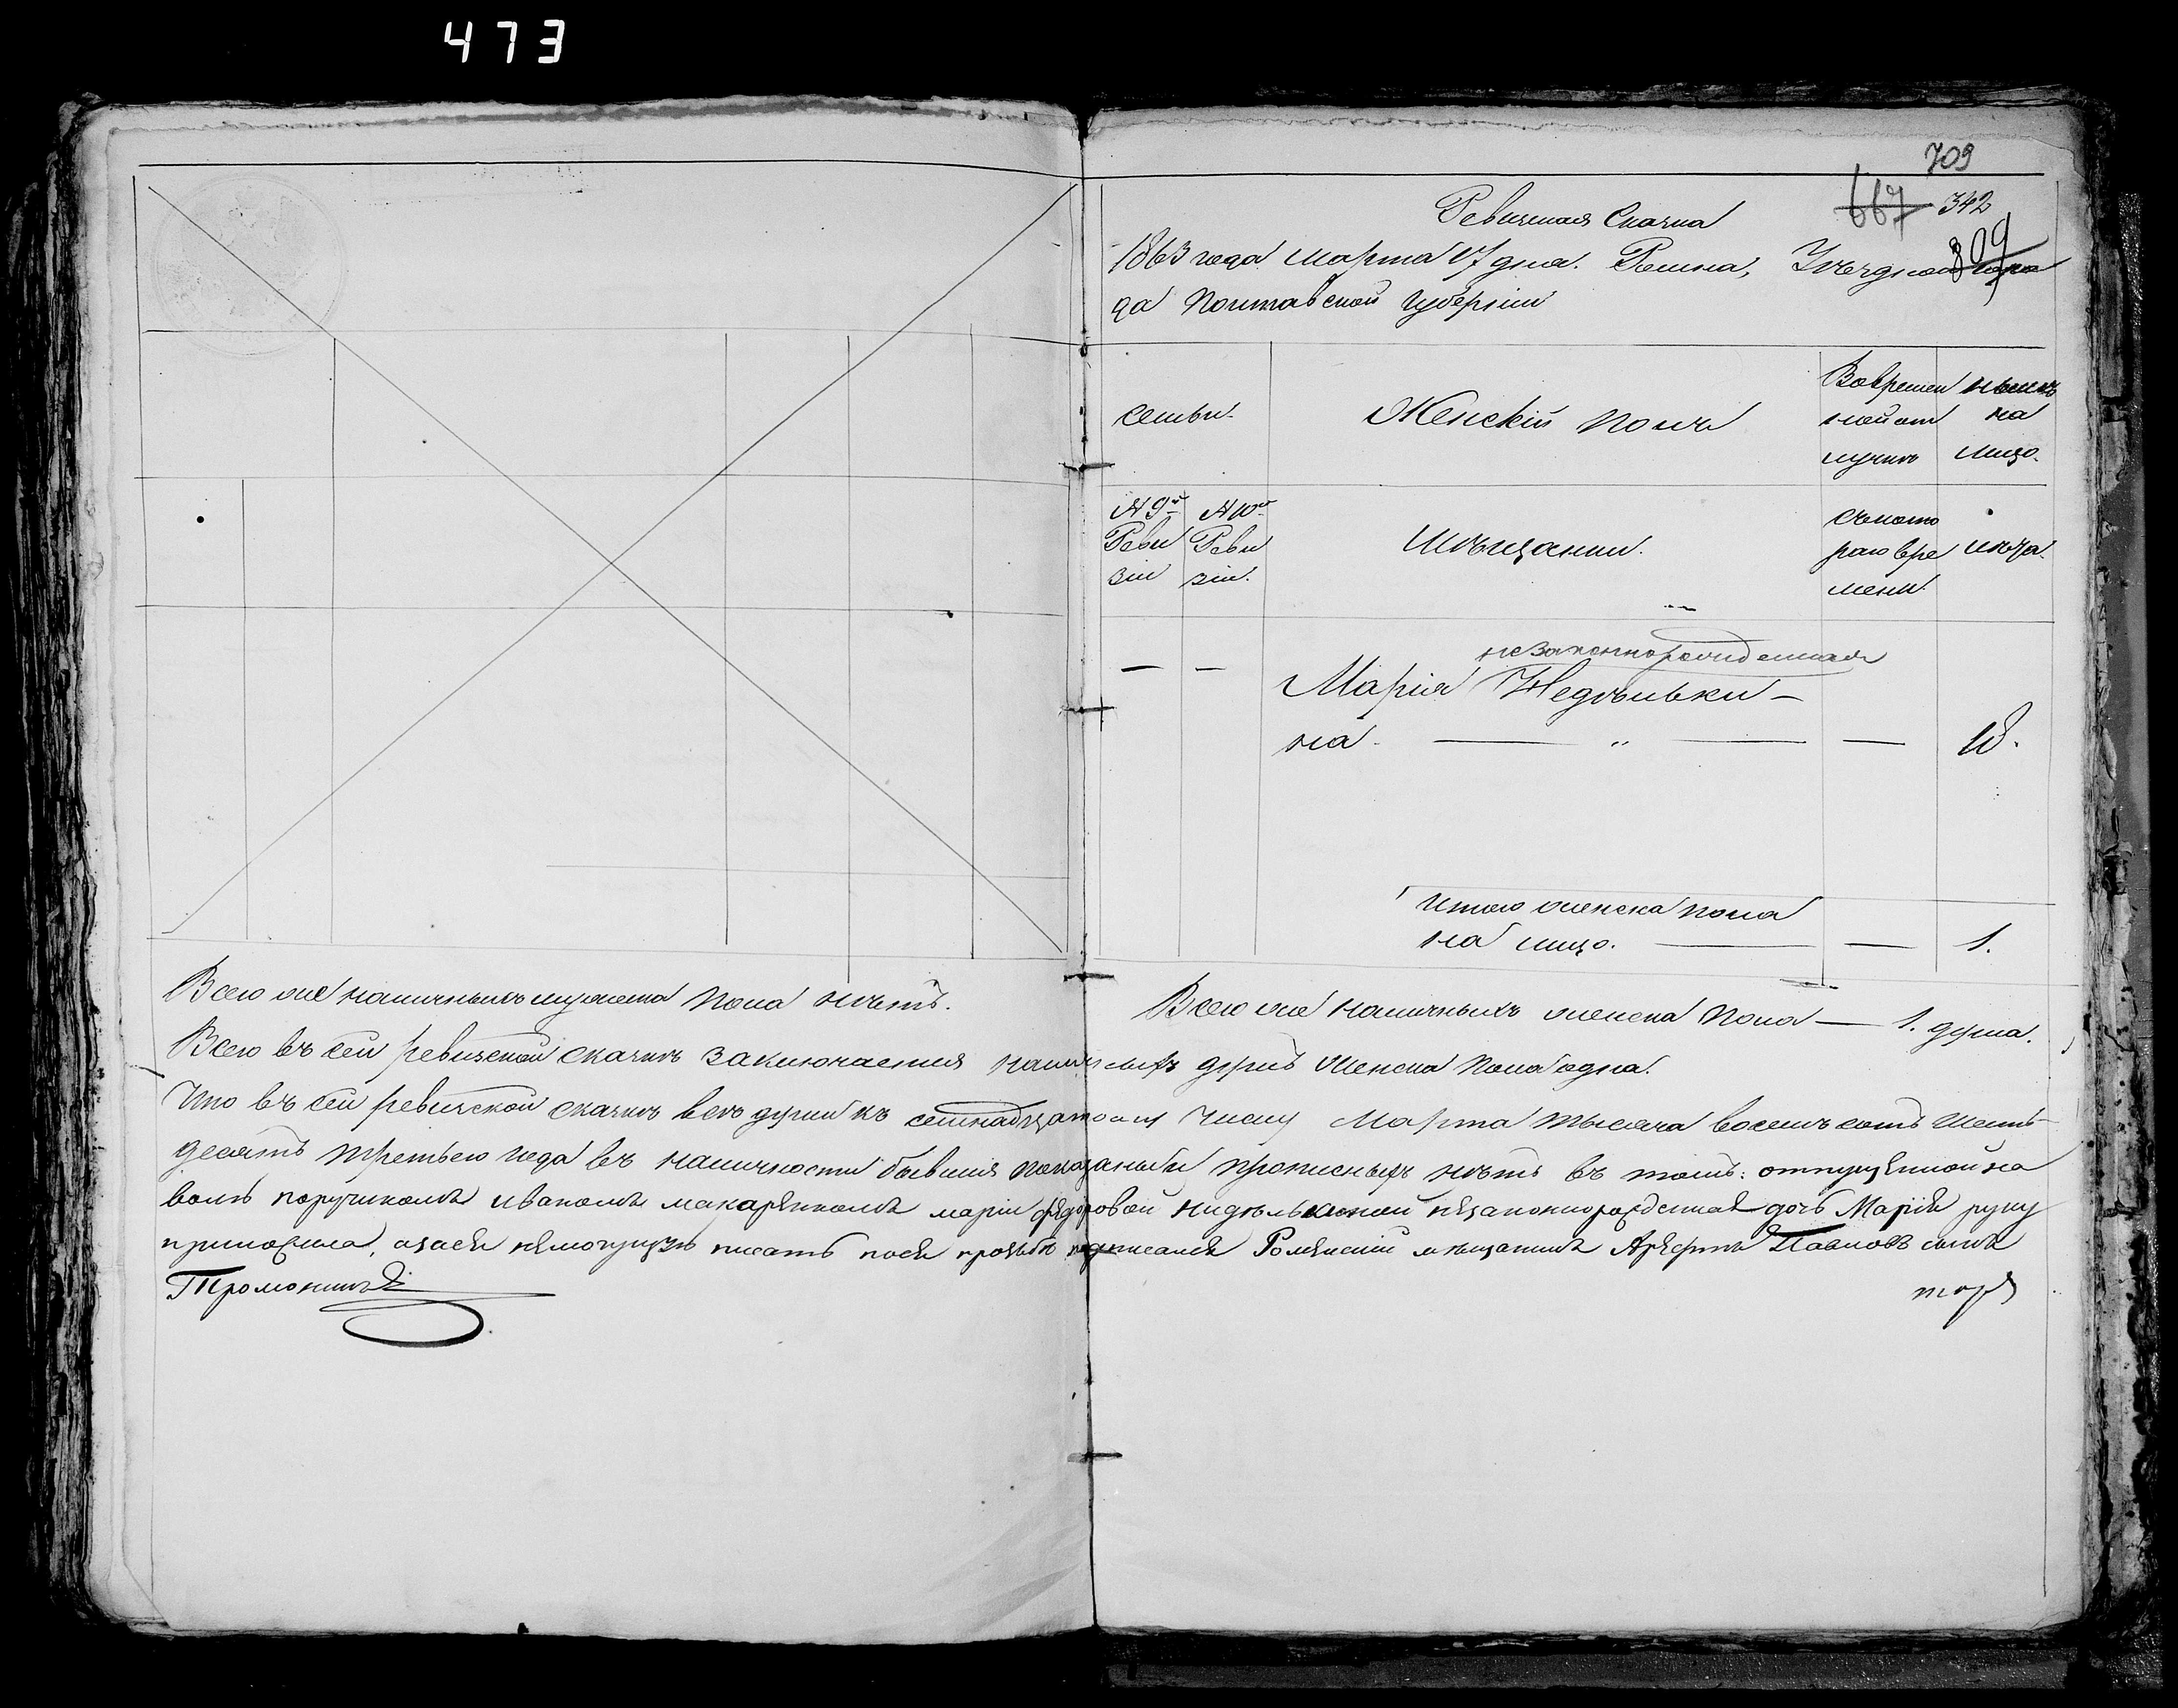 473
709
667 342
309
Ревизская Сказка
1863 года Марта 17 дня. Ромна, Уѣзднаго горо
да Полтавской Губерніи
Семьи.
Женскій полъ
Вовремен
ной от
лучкѣ
нынѣ
на
лицо.
№ 9й
Реви
зіи
№ 10й
Реви
зіи.
Мѣщанки.
съкото
раго вре
мени.
лѣта.
незаконнорожденная
— — Марія Недѣльки-
на. — „ — — 18.
Итого женска пола
на лицо. — — 1.
Всего же наличныхъ мужеска пола нѣтъ.
Всего же наличныхъ женска пола — 1. душа.
Всего въ сей ревизской сказкѣ заключается наличныхъ душъ женска пола одна.
Что въ сей ревизской сказкѣ всѣ души къ семнадцатому числу Марта тысяча восемъ сотъ шесть-
десятъ третьего года въ наличности бывшія показаны и прописныхъ нѣтъ въ томъ: отпущенной на
волю поручикомъ иваномъ макаренкомъ маріи федоровой недѣлькиной незаконнорожденная дочь Марія руку
приложила, азасея немогущую писать поея прозьбѣ подписался Роменскій мѣщанинъ Арефтъ Павловъ сынъ